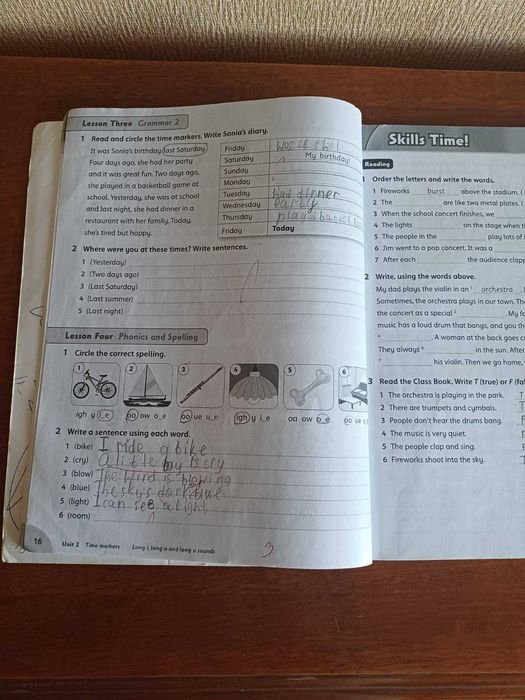 Lesson Three Grammar 2
1 Read and circle the time markers. Write Sonia's diary.
It was Sonia's birthday last Saturday.
Four days ago, she had her party
and it was great fun. Two days ago,
she played in a basketball game at
school. Yesterday, she was at school
and last night, she had dinner in a
restaurant with her family. Today,
she's tired but happy.
Friday
Saturday My birthday!
Sunday
Monday
Tuesday had dinner
Wednesday party
Thursday
Friday Today
2 Where were you at these times? Write sentences.
1 (Yesterday)
2 (Two days ago)
3 (Last Saturday)
4 (Last summer)
5 (Last night)
Lesson Four Phonics and Spelling
1 Circle the correct spelling.
1 2 3 4 5 6
igh y i_e
oa ow o_e
oo ue u_e
igh y i_e
oa ow o_e
oo ue
2 Write a sentence using each word.
1 (bike) I ride a bike
2 (cry) A little boy is cry
3 (blow) The wind is blowing
4 (blue) The sky's dark blue
5 (light) I can see a light
6 (room)
3
16 Unit 2 Time markers Long i, long o and long u sounds
Skills Time!
Reading
1 Order the letters and write the words.
1 Fireworks burst above the stadium.
2 The are like two metal plates.
3 When the school concert finishes, we
4 The lights on the stage when
5 The people in the play lots of
6 Jim went to a pop concert. It was a
7 After each the audience clapp
2 Write, using the words above.
My dad plays the violin in an 1 orchestra.
Sometimes, the orchestra plays in our town. Th
the concert as a special 2
music has a loud drum that bangs, and you th
4 . A woman at the back goes c
They always 6 in the sun. After
7 his violin. Then we go home,
3 Read the Class Book. Write T (true) or F (fa
1 The orchestra is playing in the park. T
2 There are trumpets and cymbals.
3 People don't hear the drums bang.
4 The music is very quiet.
5 The people clap and sing.
6 Fireworks shoot into the sky.